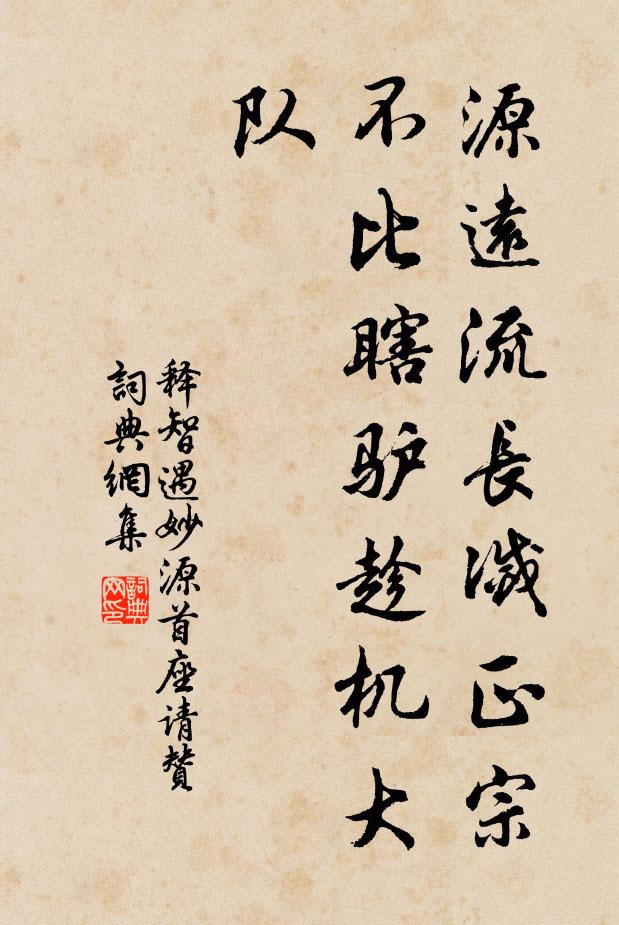 源遠流長滅正宗
不比瞎驴趁机大
队
释智遇妙源首座请赞
詞典網集
詞典
网印